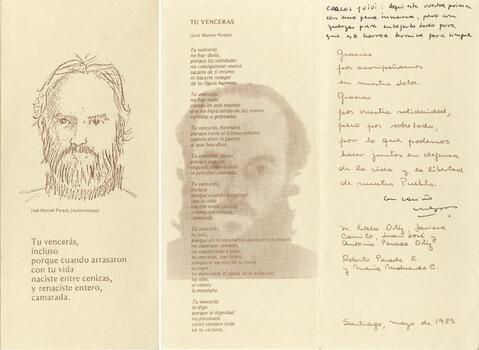 José Manuel Parada (Autorretrato)
Tu vencerás,
incluso
porque cuando arrasaron
con tu vida
naciste entre cenizas,
y renaciste entero,
camarada.
TU VENCERAS
(José Manuel Parada)
Tu vencerás
no hay duda,
porque las soledades
no consiguieron nunca
sacarte de ti mismo
ni hacerte renegar
de tu figura humana.
Tu vencerás
no hay nada
creado en este mundo
que no haya salido de tus manos
curtidas o golpeadas.
Tu vencerás, hermano
porque hasta el último minuto
supiste abrir la puerta
al que buscaba.
Tu vencerás,
porque seguir
seguirás
la próxima alborada.
Tu vencerás,
incluso
porque cuando arrasaron
con tu vida
naciste entre cenizas,
y renaciste entero,
camarada.
Tu vencerás,
tu
porque en
no esperas
tu vencerás, con todos,
porque el secreto de la tierra
es tuyo
las olas,
el viento
la montaña.
Tu vencerás
te digo
porque la dignidad
no pisoteada
vivirá siempre toda
en tu victoria.
Carlos Quivi: Aquí está vuestra prima
con una pena inmensa, pero con
fuerzas para entregarlo todo para
que este horror termine para siempre
Gracias
por acompañarnos
en nuestro dolor
Gracias
por vuestra solidaridad,
pero por sobre todo,
por lo que podemos
hacer juntos en defensa
de la vida y la libertad
de nuestro Pueblo.
con cariño
M. Estela Ortiz, Javiera
Camilo, Juan José y
Antonio Parada Ortiz
Roberto Parada R.
y María Maluenda C.
Santiago, mayo de 1985